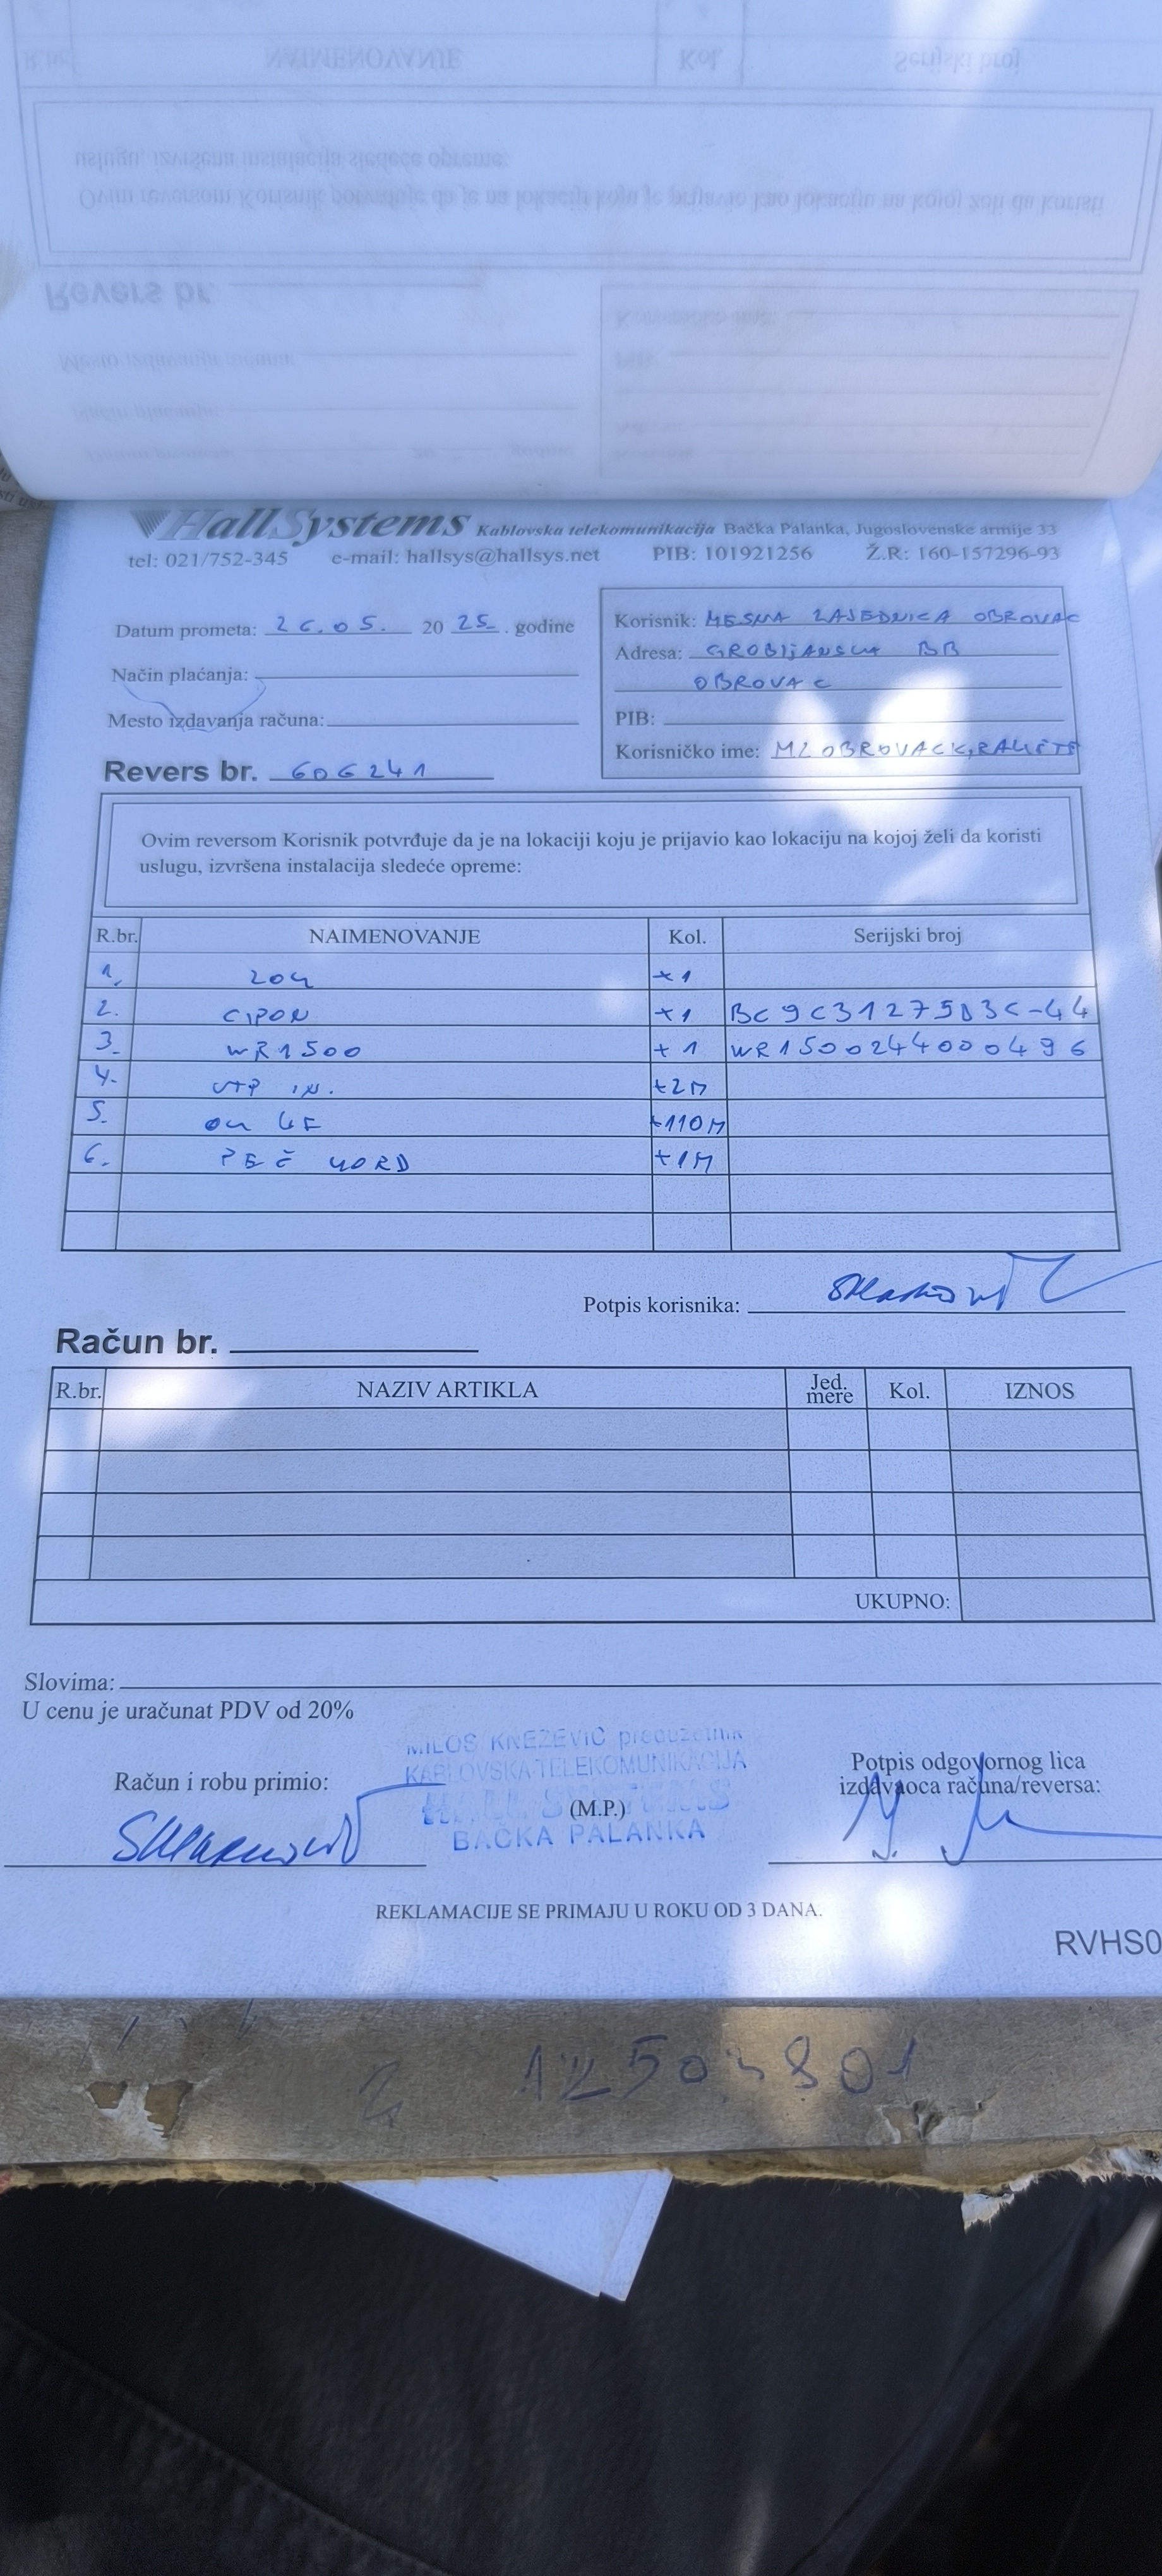 HallSystems Kablovska telekomunikacija Bačka Palanka, Jugoslovenske armije 33
tel: 021/752-345 e-mail: hallsys@hallsys.net PIB: 101921256 Ž.R: 160-157296-93
Datum prometa: 26.05. 2025. godine
Način plaćanja:
Mesto izdavanja računa:
Korisnik: MESNA ZAJEDNICA OBROVAC
Adresa: GROBLJANSKA BB
OBROVAC
PIB:
Korisničko ime: MZOBROVACK,RAKETE
Revers br. 606241
Ovim reversom Korisnik potvrđuje da je na lokaciji koju je prijavio kao lokaciju na kojoj želi da koristi
uslugu, izvršena instalacija sledeće opreme:
R.br. NAIMENOVANJE Kol. Serijski broj
1. ZOK +1
2. GPON +1 BC9C31275D3C-44
3. WR1500 +1 WR1500244000496
4. UTP IN. +2M
5. OK 4F +110M
6. PEČ KORD +1M
Potpis korisnika:
Račun br.
R.br. NAZIV ARTIKLA Jed. mere Kol. IZNOS
UKUPNO:
Slovima:
U cenu je uračunat PDV od 20%
MILOŠ KNEŽEVIĆ preduzetnik
KABLOVSKA TELEKOMUNIKACIJA
HALL SYSTEMS
BAČKA PALANKA
Račun i robu primio:
(M.P.)
Potpis odgovornog lica
izdavaoca računa/reversa:
REKLAMACIJE SE PRIMAJU U ROKU OD 3 DANA.
RVHS0